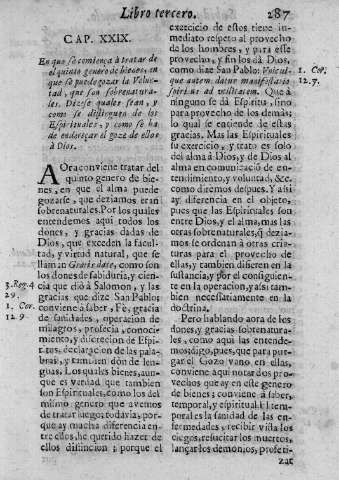 Libro tercero. 287
CAP. XXIX.
En que se comiença à tratar de
el quinto genero de bienes, en
que se puede gozar la Volun-
tad, que son sobrenatura-
les. Dizese quales sean, y
como se distinguen de los
Espirituales, y como se ha
de endereçar el gozo de ellos
à Dios.
AOra conviene tratar del
quinto genero de bie-
nes, en que el alma puede
gozarse, que deziamos eran
sobrenaturales. Por los quales
entendemos aqui todos los
dones, y gracias dadas de
Dios, que exceden la facul-
tad, y virtud natural, que se
llaman Gratis datæ, como son
los dones de sabiduria, y cien-
cia que diò à Salomon, y las
3. Reg. 4
29
gracias que dize San Pablo:
1. Cor.
12. 9
conviene à saber, Fè, gracia
de sanidades, operacion de
milagros, profecia, conoci-
miento, y discrecion de Espi-
ritus, declaracion de las pala-
bras, y tambien don de len-
guas. Los quales bienes, aun-
que es verdad que tambien
son Espirituales, como los del
mismo genero que avemos
de tratar luego; todavia, por-
que ay mucha diferencia en-
tre ellos, he querido hazer de
ellos distincion; porque el
exercicio de estos tiene in-
mediato respeto al provecho
de los hombres, y para este
provecho, y fin los dà Dios,
como dize San Pablo: Vnicui-
1. Cor.
12. 7.
que autem datur manifestatio
spiritus ad vtilitatem. Que à
ninguno se dà Espiritu, sino
para provecho de los demàs;
lo qual se entiende de estas
gracias. Mas las Espirituales
su exercicio, y trato es solo
del alma à Dios, y de Dios al
alma en comunicació de en-
tendimiento, y voluntad, &c.
como diremos despues. Y assi
ay diferencia en el objeto,
pues que las Espirituales son
entre Dios, y el alma, mas las
otras sobrenaturales, q̃ dezia-
mos se ordenan à otras cria-
turas para el provecho de
ellas, y tambien difieren en la
sustancia, y por el consiguien-
te en la operacion, y assi tam-
bien necessariamente en la
doctrina.
Pero hablando aora de los
dones, y gracias sobrenatura-
les, como aqui las entende-
mos; digo, pues, que para pur-
gar el Gozo vano en ellas,
conviene aqui notar dos pro-
vechos que ay en este genero
de bienes; conviene à saber,
temporal, y espiritual. El tem-
poral es la sanidad de las en-
fermedades, recibir vista los
ciegos, resucitar los muertos,
lançar los demonios, profeti-
zar